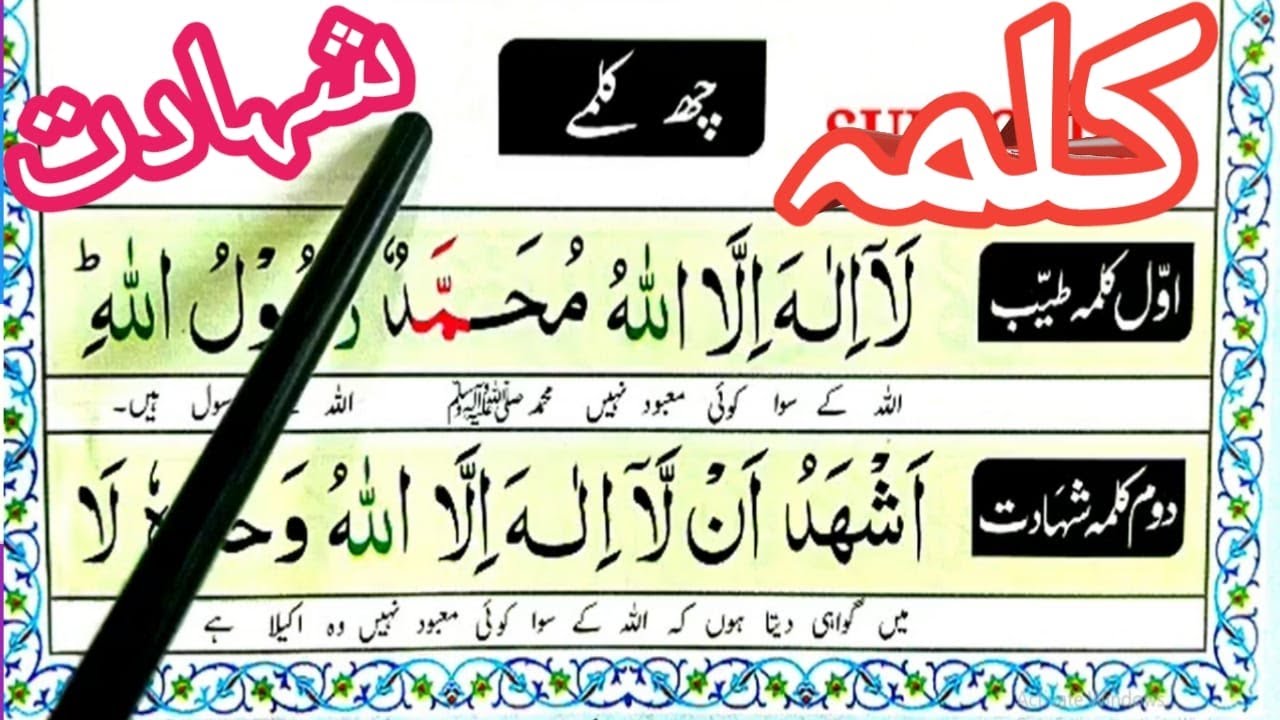 کلمہ شہادت
چھ کلمے
اوّل کلمہ طیّب
لَاۤ اِلٰهَ اِلَّا اللّٰهُ مُحَمَّدٌ رَّسُوْلُ اللّٰهِؕ
اللہ کے سوا کوئی معبود نہیں محمد ﷺ اللہ رسول ہیں۔
دوم کلمہ شہادت
اَشْهَدُ اَنْ لَّاۤ اِلٰهَ اِلَّا اللّٰهُ وَحْدَهٗ لَا
میں گواہی دیتا ہوں کہ اللہ کے سوا کوئی معبود نہیں وہ اکیلا ہے
Activate Windows